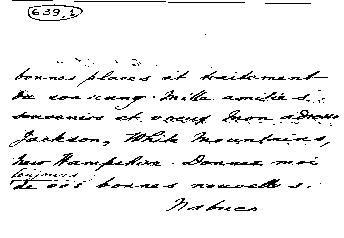 639,1
bonnes places et traitement
de son rang. Mille amitiés
souvenirs et vœux mon adresse
Jackson, White Mountains,
New Hampshire. Donnez moi
toujours
de vos bonnes nouvelles.
Nabuco